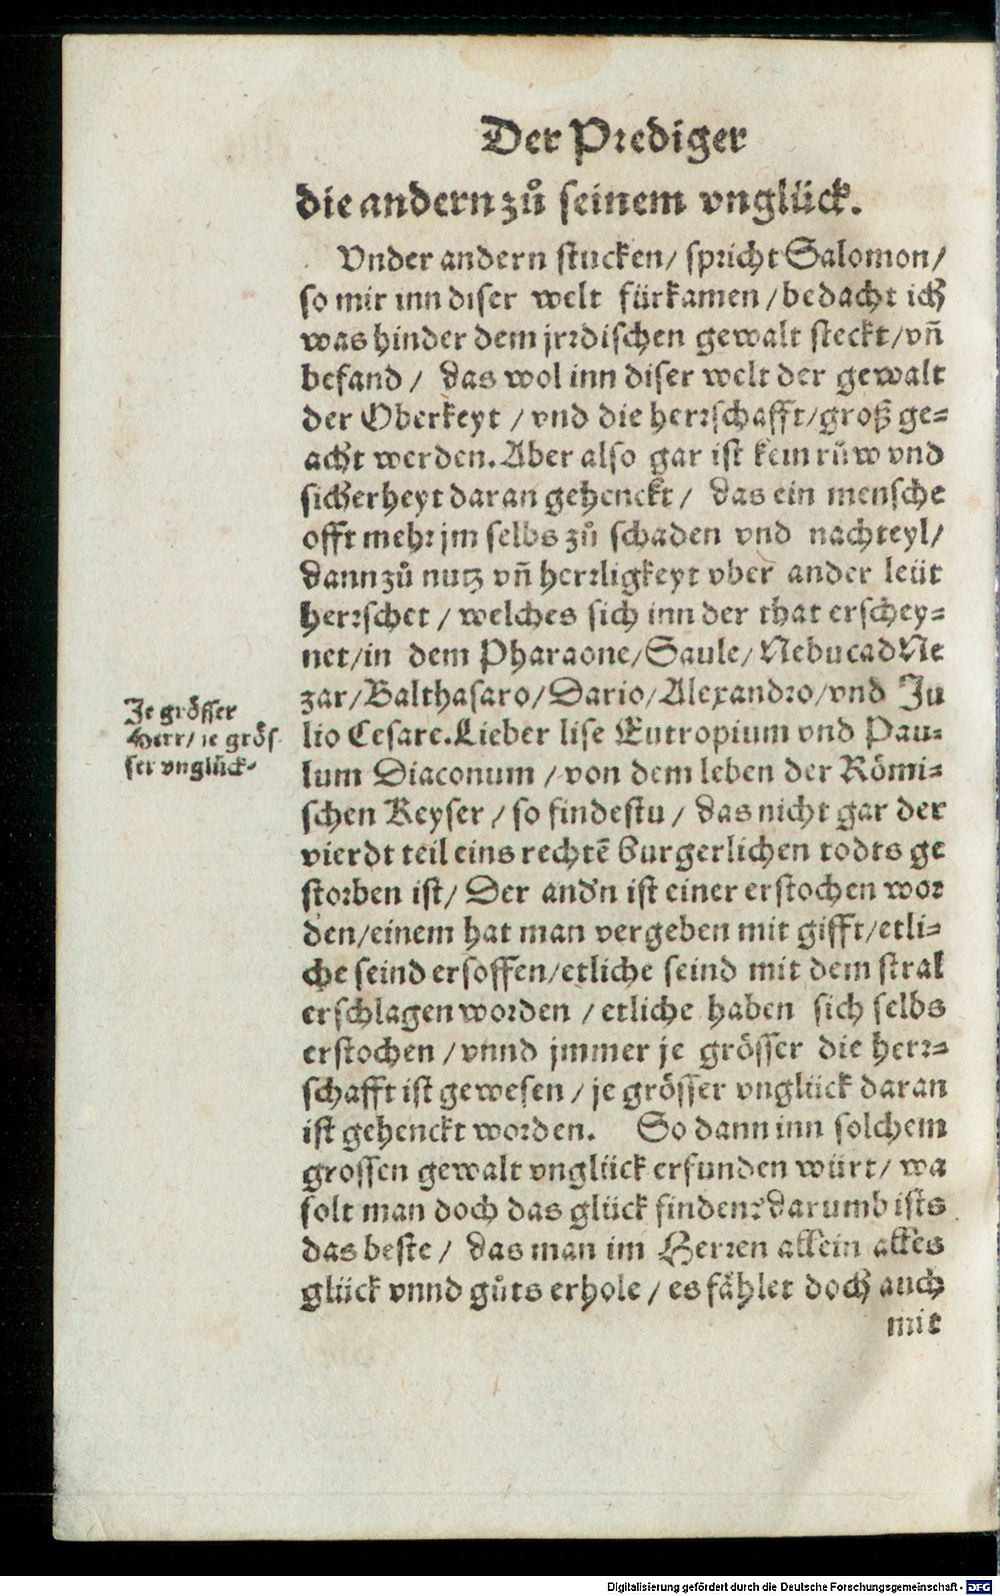 Der Prediger
die andern zuͦ seinem vnglück.
Vnder andern stucken / spricht Salomon /
so mir inn diser welt fürkamen / bedacht ich
was hinder dem jrrdischen gewalt steckt / vñ
befand / das wol inn diser welt der gewalt
der Oberkeyt / vnd die herrschafft / groß ge=
acht werden. Aber also gar ist kein ruͤw vnd
sicherheyt daran gehenckt / das ein mensche
offt mehr jm selbs zuͦ schaden vnd nachteyl /
dann zuͦ nutz vñ herrligkeyt vber ander leüt
herrschet / welches sich inn der that erschey=
net / in dem Pharaone / Saule / NebucadNe
zar / Balthasaro / Dario / Alexandro / vnd Ju
Je grösser
Herr / je grös
ser vnglück.
lio Cesare. Lieber lise Eutropium vnd Pau=
lum Diaconum / von dem leben der Römi=
schen Keyser / so findestu / das nicht gar der
vierdt teil eins rechtē burgerlichen todts ge
storben ist / Der and'n ist einer erstochen wor
den / einem hat man vergeben mit gifft / etli=
che seind ersoffen / etliche seind mit dem stral
erschlagen worden / etliche haben sich selbs
erstochen / vnnd jmmer je grösser die herr=
schafft ist gewesen / je grösser vnglück daran
ist gehenckt worden. So dann inn solchem
grossen gewalt vnglück erfunden würt / wa
solt man doch das glück finden? darumb ists
das beste / das man im Herren allein alles
glück vnnd guͦts erhole / es fählet doch auch
mit
Digitalisierung gefördert durch die Deutsche Forschungsgemeinschaft - DFG